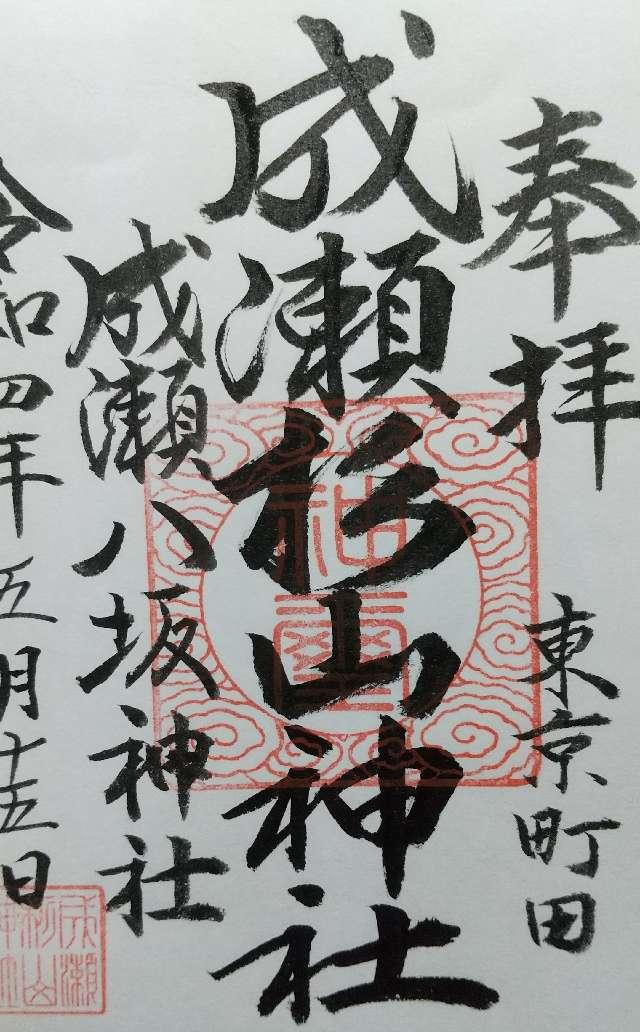 奉拝
東京町田
成瀬杉山神社
成瀬八坂神社
令和四年五月十五日
神璽
成瀬
杉山
神社